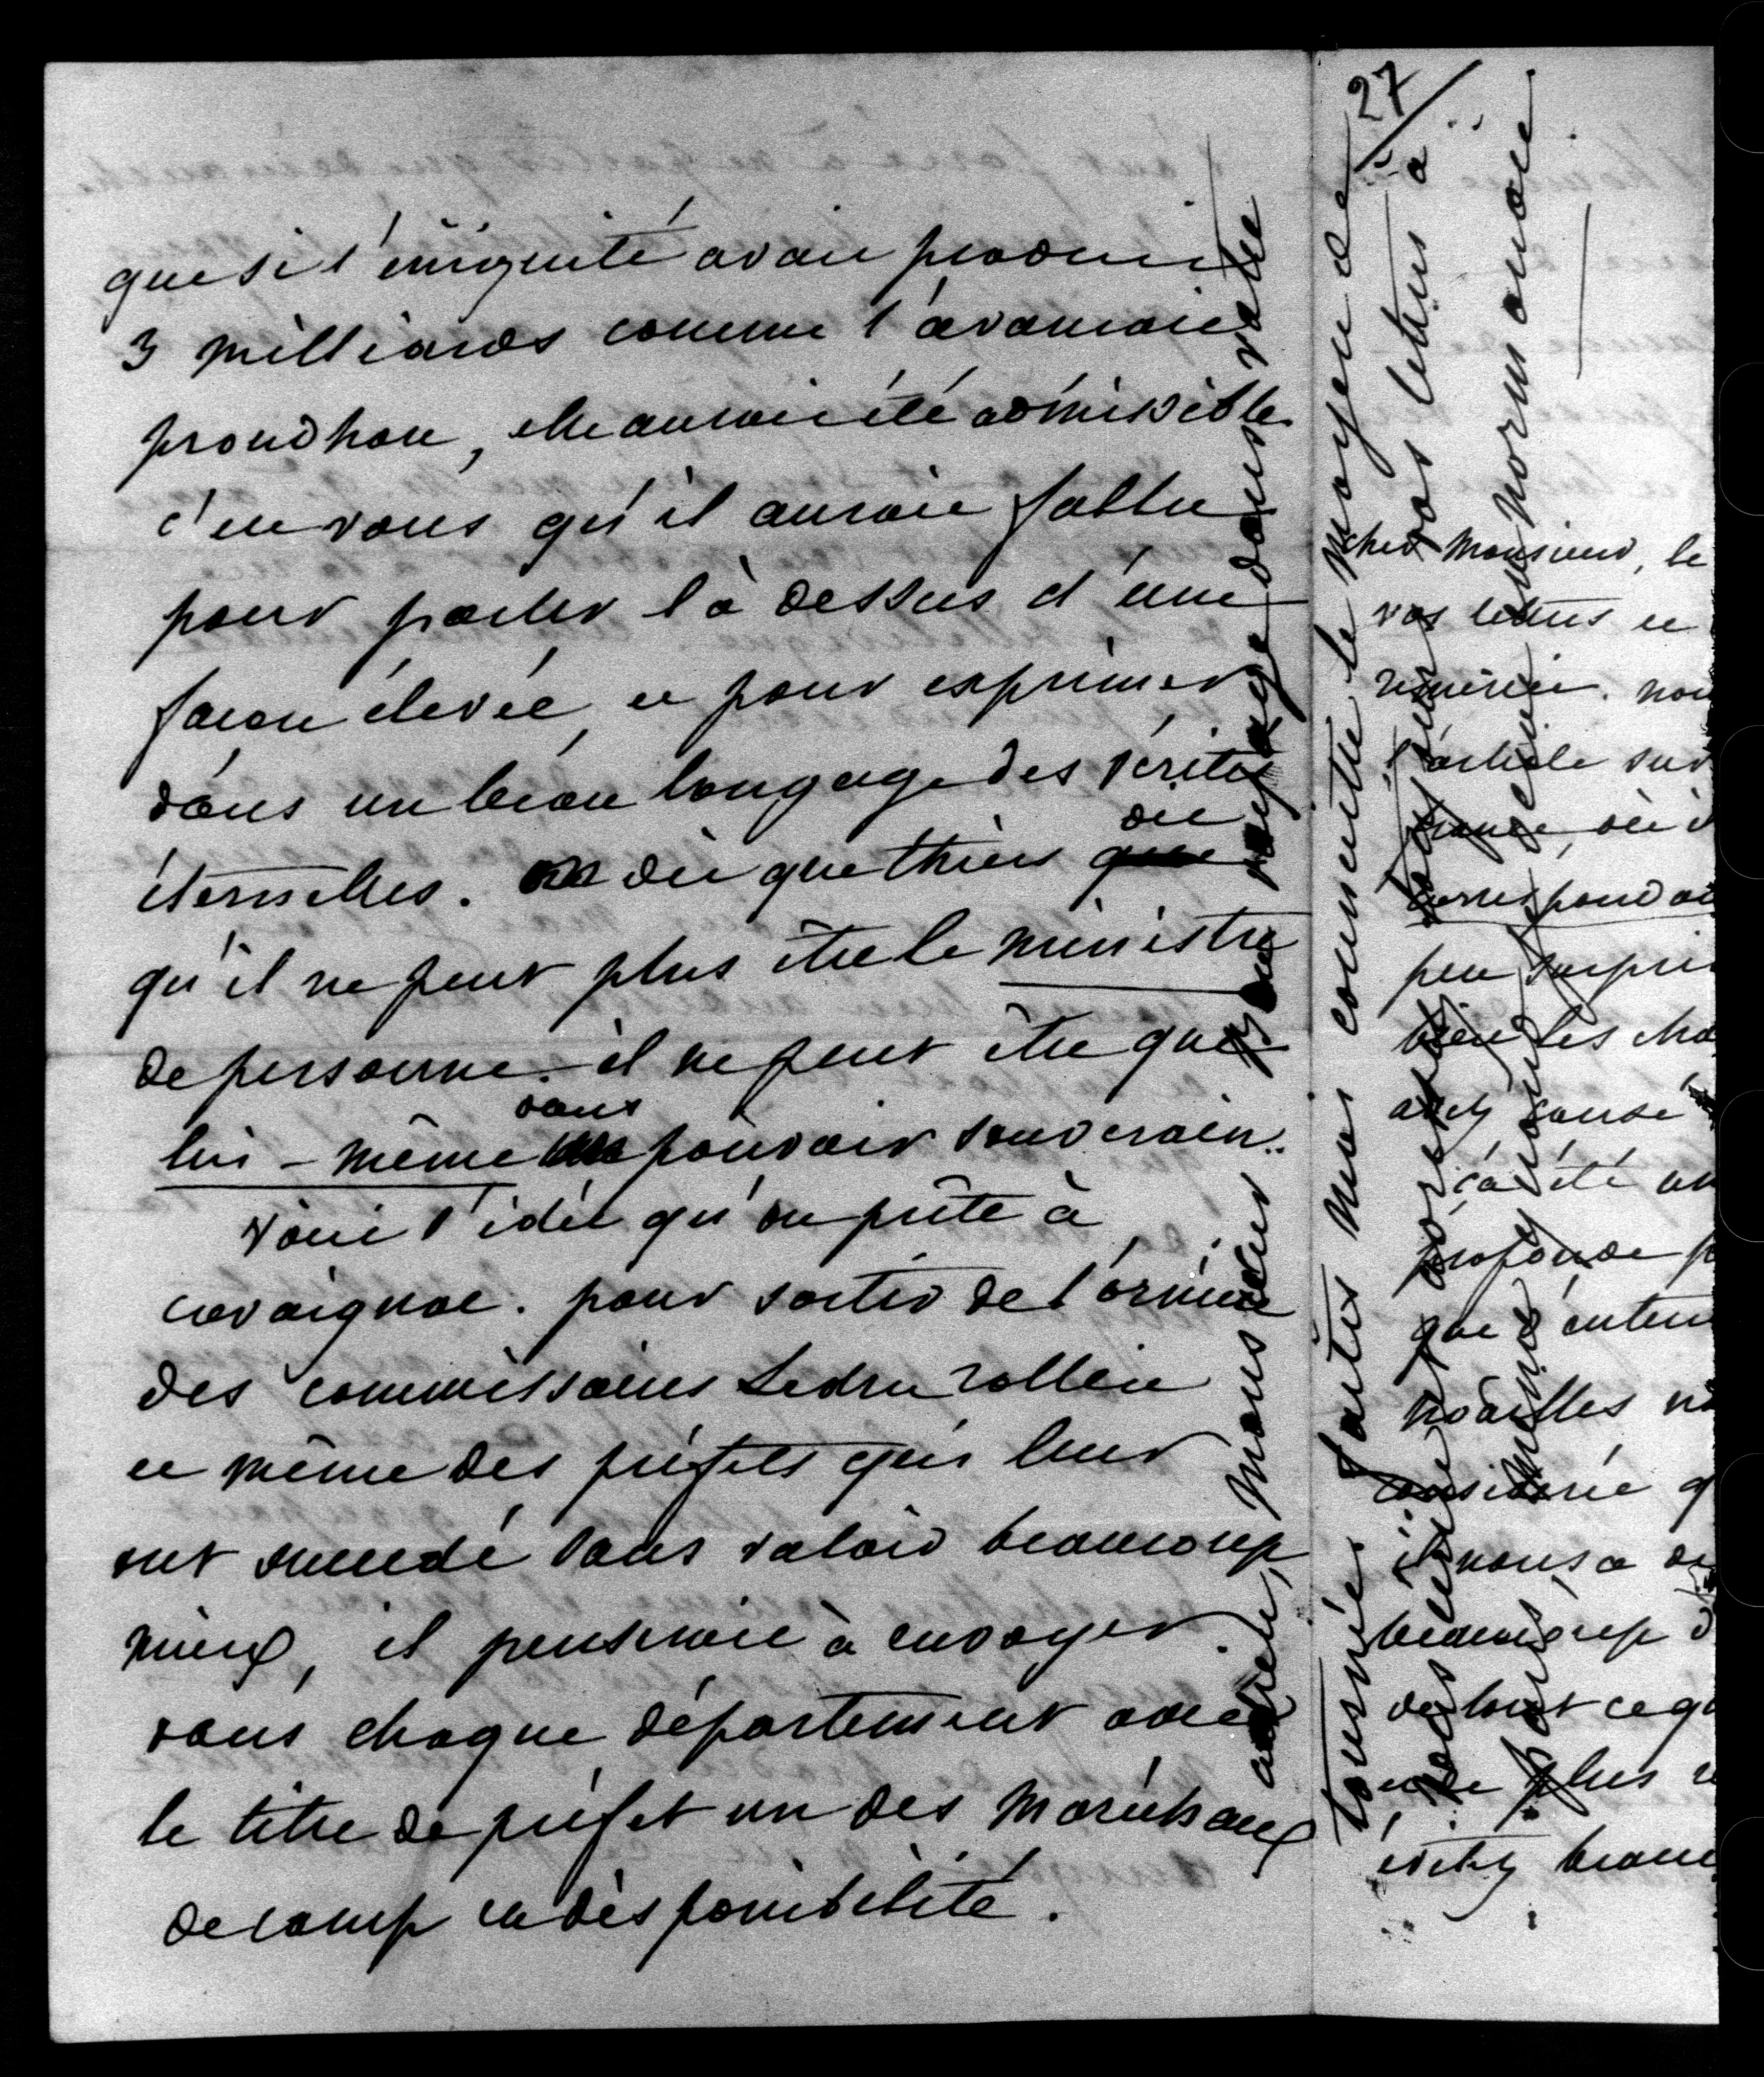 que si l'iniquité avait produit
3 milliards comme l'avançait
proudhon, elle aurait été admissible.
c'est vous qu'il aurait fallu
pour parler là dessus d'une
façon élevée, et pour exprimer
dans un beau langage des vérités
éternelles. on dit que thiers dit
qu'il ne peut plus être le ministre
de personne. il ne peut être que
lui-même dans pouvoir souverain.
voici l'idée qu'on prête à
cavaignac. pour sortir de l'ornière
des commissaires Ledru rollin
et même des préfets qui leur
ont succédé sans valoir beaucoup
mieux, il penserait à envoyer
dans chaque département avec
le titre de préfet un des maréchaux
de camp en disponibilité.
adieu, monsieur, voyage dans votre
tournée. faites moi connaitre le moyen de
vos lettres à
paris quand en normandie
27
cher Monsieur, le
vos lettres et
remercie. nou
l'article sur
correspondan
peu surpri
bien les cho
avez causé
ça été un
profonde p
que d'enten
noailles n
considérée q
il nous a d
beaucoup d
de tout ce q
et de plus
évitez beauc